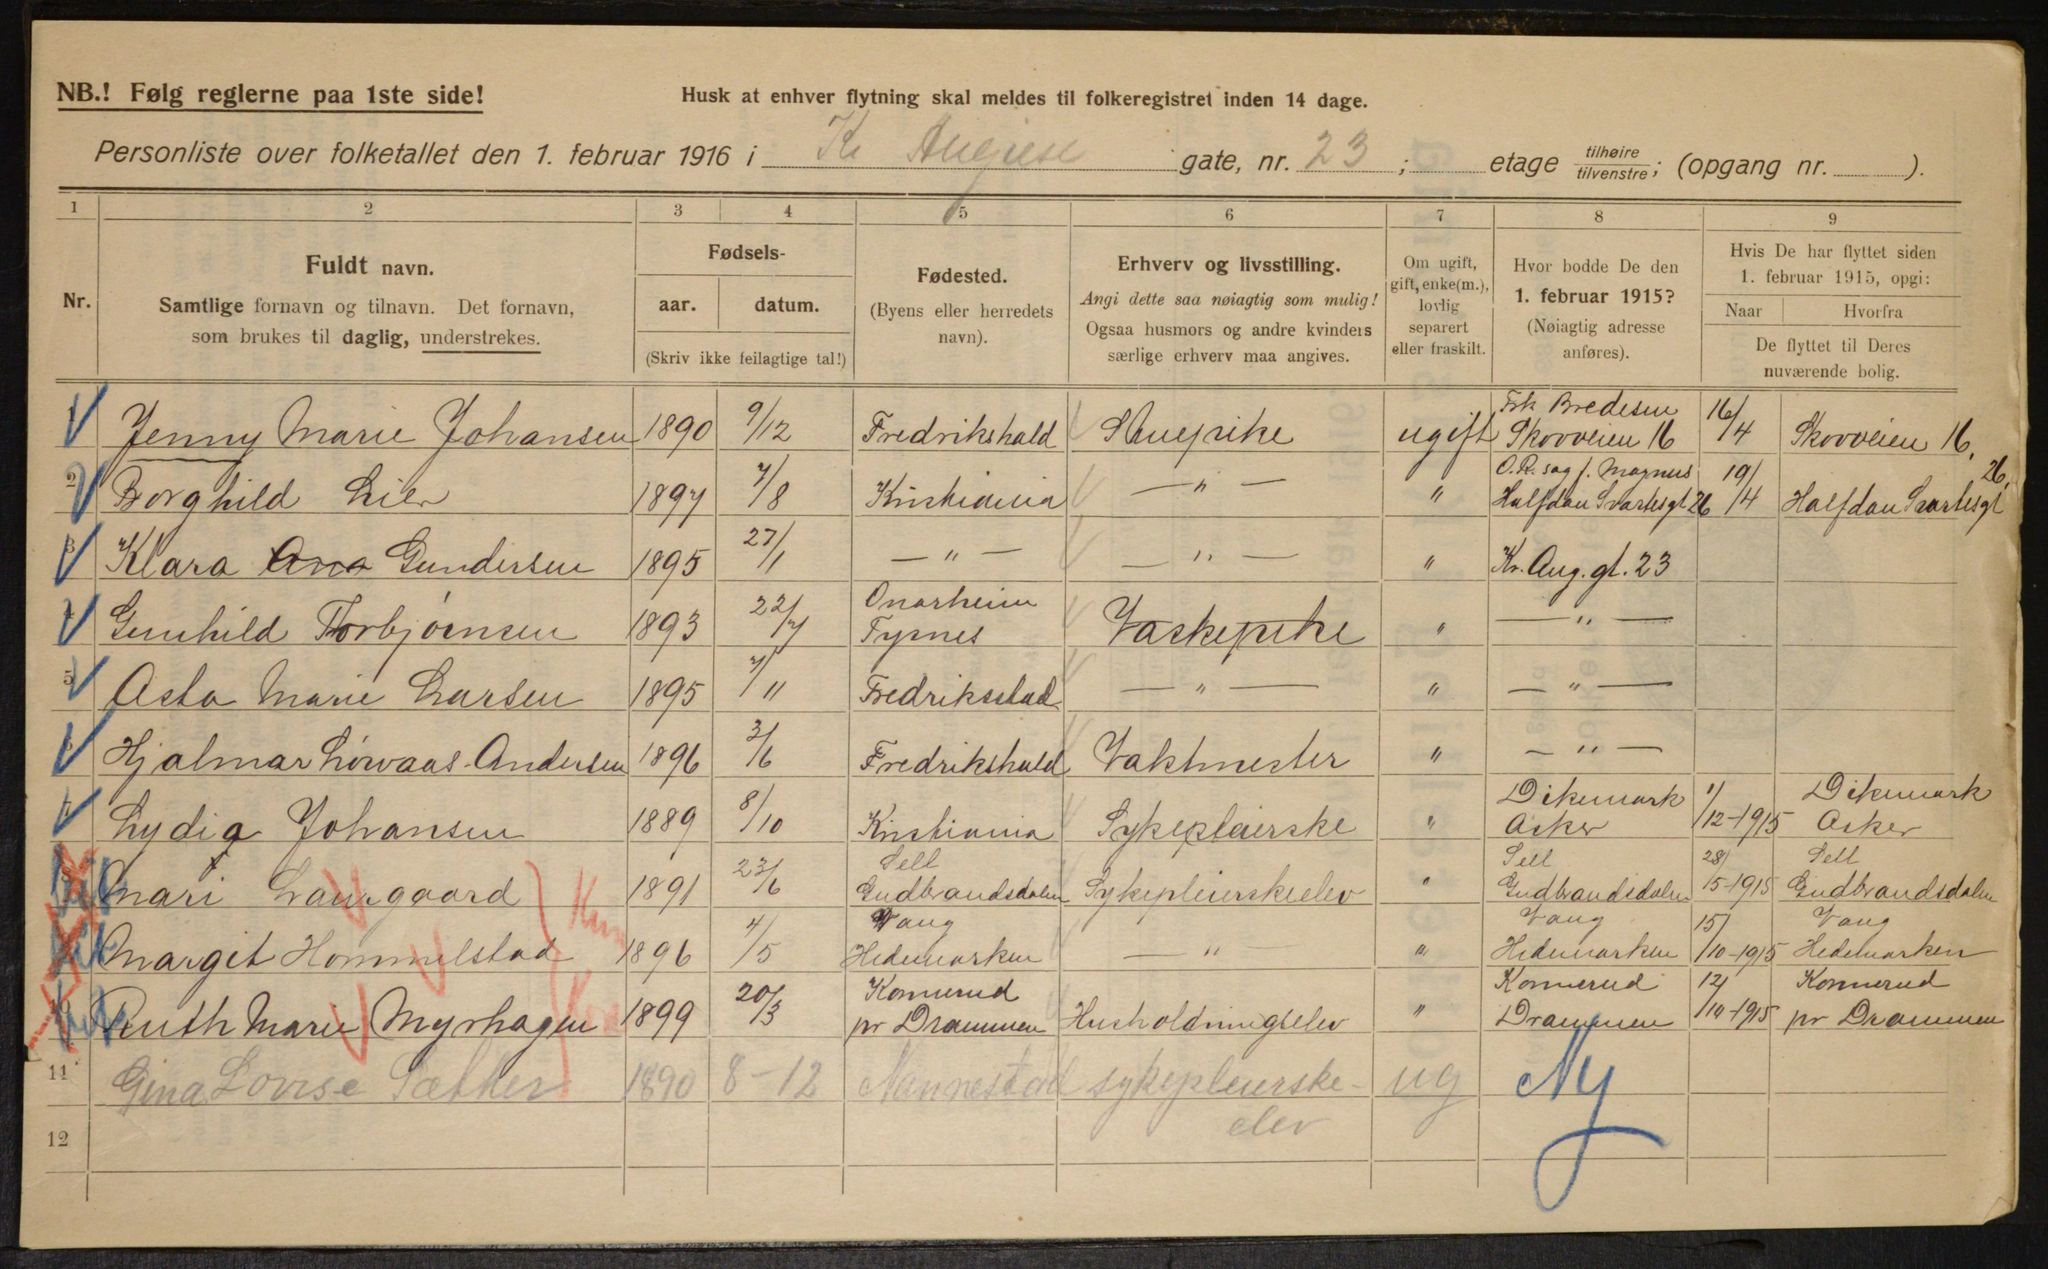 NB.! Følg reglerne paa 1ste side!
Husk at enhver flytning skal meldes til folkeregistret inden 14 dage.
Personliste over folketallet den 1. februar 1916 i Kr Auguse gate, nr. 23; etage tilhøire/tilvenstre; (opgang nr. ).
1 2 3 4 5 6 7 8 9
Nr.
Fuldt navn.
Samtlige fornavn og tilnavn. Det fornavn,
som brukes til daglig, understrekes.
Fødsels-
aar. datum.
(Skriv ikke feilagtige tal!)
Fødested.
(Byens eller herredets
navn).
Erhverv og livsstilling.
Angi dette saa nøiagtig som mulig!
Ogsaa husmors og andre kvinders
særlige erhverv maa angives.
Om ugift,
gift, enke(m.),
lovlig
separert
eller fraskilt.
Hvor bodde De den
1. februar 1915?
(Nøiagtig adresse
anføres).
Hvis De har flyttet siden
1. februar 1915, opgi:
Naar Hvorfra
De flyttet til Deres
nuværende bolig.
1 Jenny Marie Johansen 1890 9/12 Fredrikshald Stuepike ugift Frk Bredesen Skovveien 16 16/4 Skovveien 16.
2 Borghild Lier 1897 7/8 Kristiania — " — " O.R.sag f. Magnus Halfdan Svartesgt 26 19/4 Halfdan Svartesgt 26.
3 Klara Ana Gundersen 1895 27/1 — " — — " — " Kr. Aug. gt. 23
4 Gunhild Torbjørnsen 1893 22/7 Onarheim Tysnes Vaskepike " — " —
5 Asta Marie Larsen 1895 7/11 Fredriksstad — " — " — " —
6 Hjalmar Løwaas-Andersen 1896 3/6 Fredrikshald Vaktmester " — " —
7 Lydia Johansen 1889 8/10 Kristiania Sykepleierske " Dikemark Asker 1/12-1915 Dikemark Asker
8 Mari Laurgaard 1891 23/6 Sell Gudbrandsdalen Sykepleierskeelev " Sell Gudbrandsdalen 28/5-1915 Sell Gudbrandsdalen
Margit Hommelstad 1896 4/5 Vang Hedemarken — " — " Vang Hedemarken 15/10-1915 Vang Hedemarken
Ruth Marie Myrhagen 1899 20/3 Konnerud pr Drammen Husholdningselev " Konnerud Drammen 12/10-1915 Konnerud pr Drammen
11 Gina Lovise Sæther 1890 8-12 Nannestad sykepleierske-elev ug Ny
12